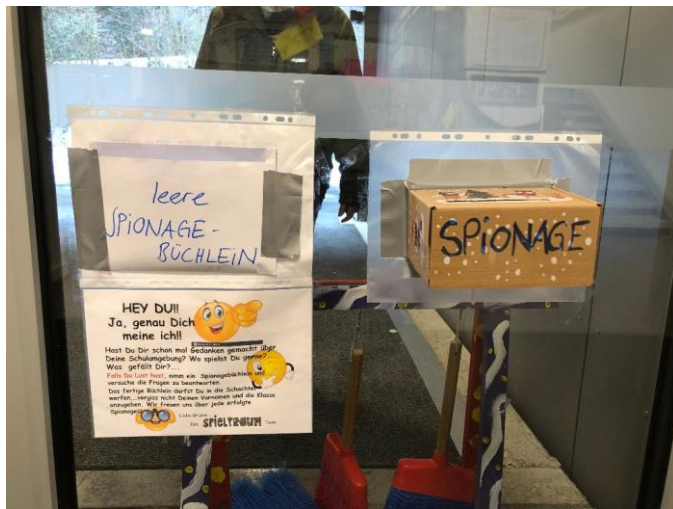 leere
SPIONAGE-
BÜCHLEIN
SPIONAGE
HEY DU!!
Ja, genau Dich
meine ich!!
Hast Du Dir schon mal Gedanken gemacht über
Deine Schulumgebung? Wo spielst Du gerne?...
Was gefällt Dir?...
Falls Du Lust hast, nimm ein Spionagebüchlein und
versuche die Fragen zu beantworten.
Das fertige Büchlein darfst Du in die Schachtel
werfen,...vergiss nicht Deinen Vornamen und die Klasse
anzugeben. Wir freuen uns über jede erfolgte
Spionage!
Liebe Grüsse
SPIELTRAUM Team